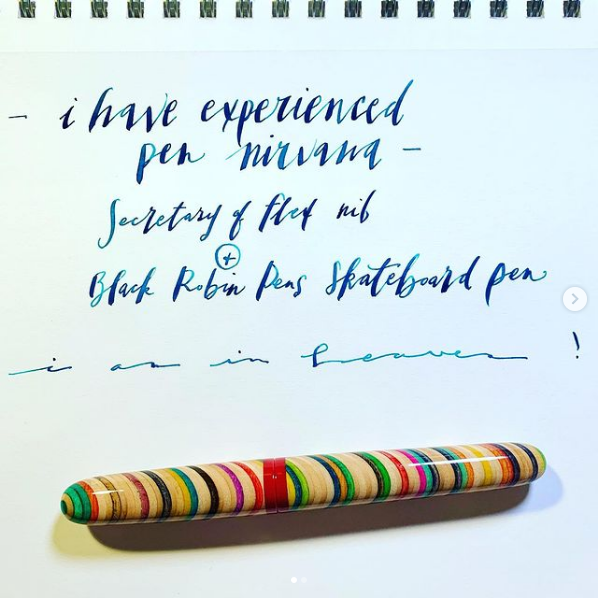 - i have experienced
pen nirvana -
Secretary of Flex nib
+
Black Robin Pens Skateboard pen
i am in heaven !